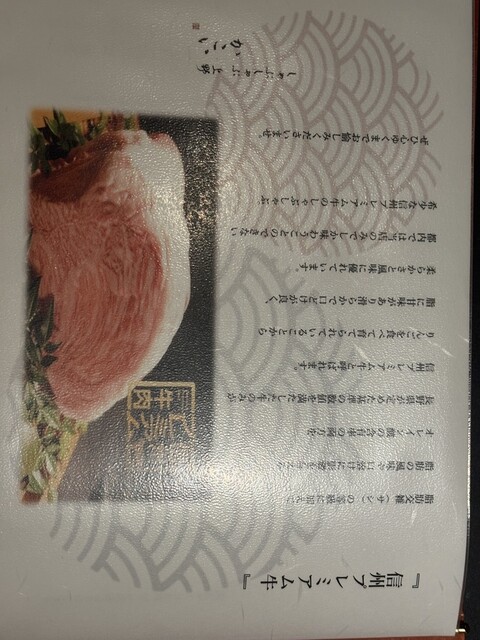 『信州プレミアム牛』
脂肪交雑(サシ)の等級に加えて、
脂肪の風味や口溶けに影響を与える
オレイン酸の含有率の両方を
長野県が定めた基準の数値を満たした牛のみが
信州プレミアム牛と呼ばれます。
りんごを食べて育てられていることから
脂に甘味があり滑らかで口どけが良く、
柔らかさと風味に優れています。
都内では当店のみでしか味わうことのできない
希少な信州プレミアム牛のしゃぶしゃぶ
ぜひ心ゆくまでお愉しみくださいませ。
しゃぶしゃぶ 上野
かこい
牛肉